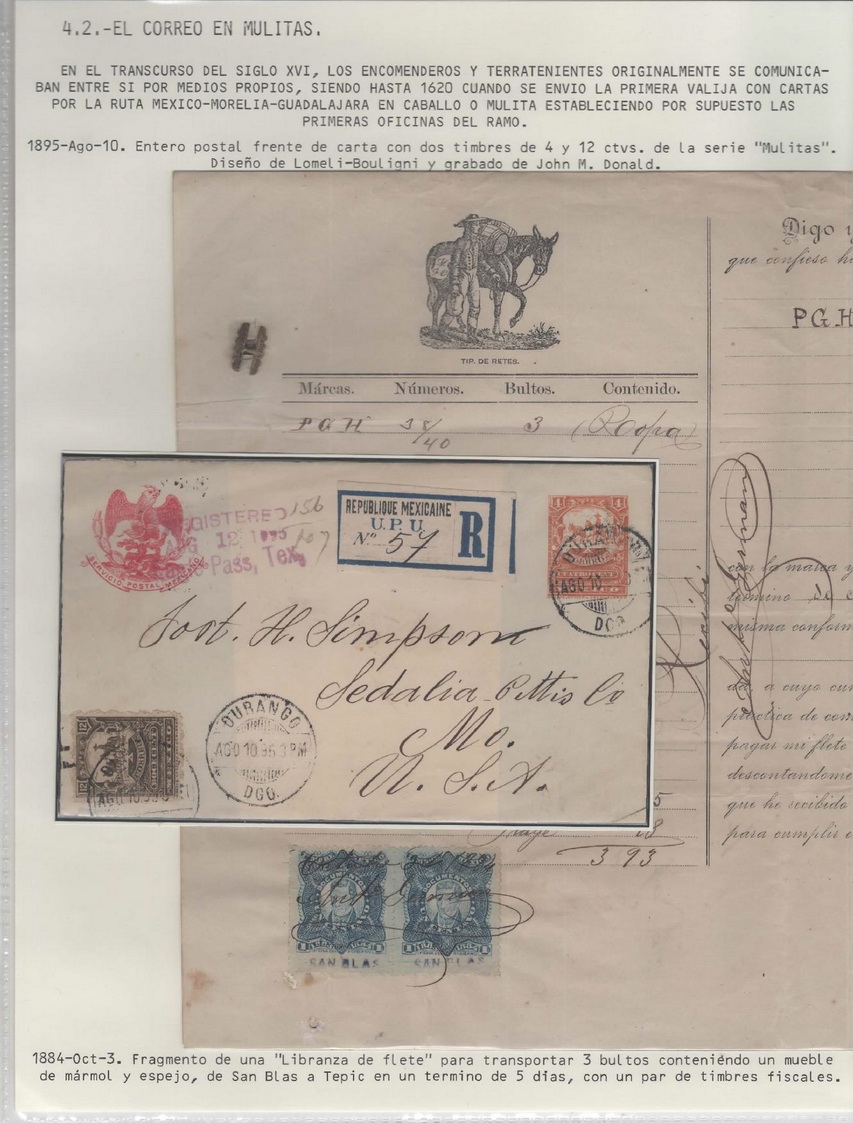 4.2.-EL CORREO EN MULITAS.
EN EL TRANSCURSO DEL SIGLO XVI, LOS ENCOMENDEROS Y TERRATENIENTES ORIGINALMENTE SE COMUNICA-
BAN ENTRE SI POR MEDIOS PROPIOS, SIENDO HASTA 1620 CUANDO SE ENVIO LA PRIMERA VALIJA CON CARTAS
POR LA RUTA MEXICO-MORELIA-GUADALAJARA EN CABALLO O MULITA ESTABLECIENDO POR SUPUESTO LAS
PRIMERAS OFICINAS DEL RAMO.
1895-Ago-10. Entero postal frente de carta con dos timbres de 4 y 12 ctvs. de la serie "Mulitas".
Diseño de Lomeli-Bouligni y grabado de John M. Donald.
TIP. DE RETES.
Márcas. Números. Bultos. Contenido.
PGH 38/40 3 (Ropa)
Digo y
que confieso h
PGH
Recibí
con la marca y
término de
misma conform
da, a cuyo cum
práctica de cor
pagar mi flete
descontandome
que he recibido
para cumplir
SERVICIO POSTAL MEXICANO
GISTERED
12 1895
Pass, Tex.
156
107
REPUBLIQUE MEXICAINE
U.P.U.
No. 57
R
4 4
DURANGO
AGO 10
DGO.
Post. H. Simpson
Sedalia Pettis Co
Mo.
U.S.A.
12
DURANGO
AGO 10 95 3 PM
DGO.
AGO 10 95
5
18
3 93
DOCUMENTOS DOCUMENTOS
SAN BLAS SAN BLAS
1884-Oct-3. Fragmento de una "Libranza de flete" para transportar 3 bultos conteniéndo un mueble
de mármol y espejo, de San Blas a Tepic en un termino de 5 dias, con un par de timbres fiscales.